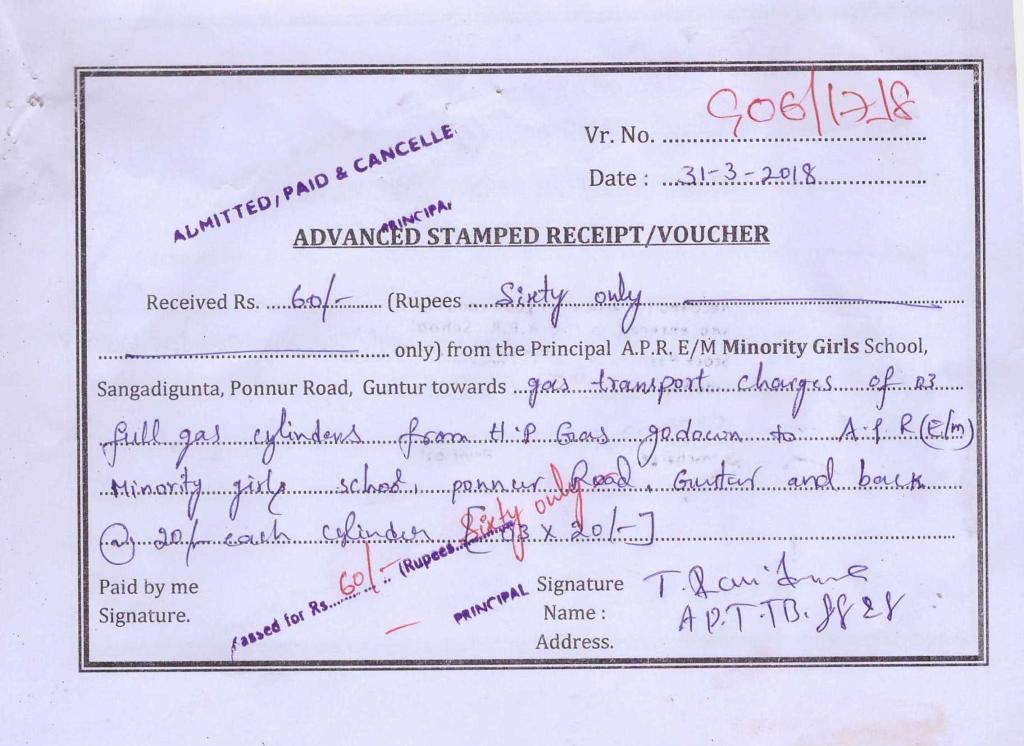 Vr. No. 906/17-18
Date : 31-3-2018
ADMITTED, PAID & CANCELLE
PRINCIPAL
ADVANCED STAMPED RECEIPT/VOUCHER
Received Rs. 60/- (Rupees Sixty only
only) from the Principal A.P.R. E/M Minority Girls School,
Sangadigunta, Ponnur Road, Guntur towards gas transport charges of 03
full gas cylinders from H.P Gas godown to A.P.R (E/m)
Minority girls school, ponnur Road, Guntur and back
@ 20/- each cylinder [03 x 20/-]
Passed for Rs. 60/- (Rupees Sixty only
PRINCIPAL
Paid by me
Signature.
Signature T.
Name :
Address.